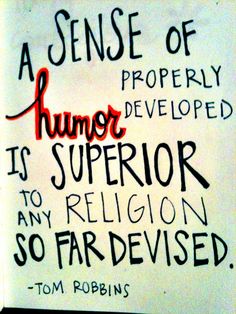 A SENSE OF
PROPERLY
humor DEVELOPED
IS SUPERIOR
TO
ANY RELIGION
SO FAR DEVISED.
-TOM ROBBINS